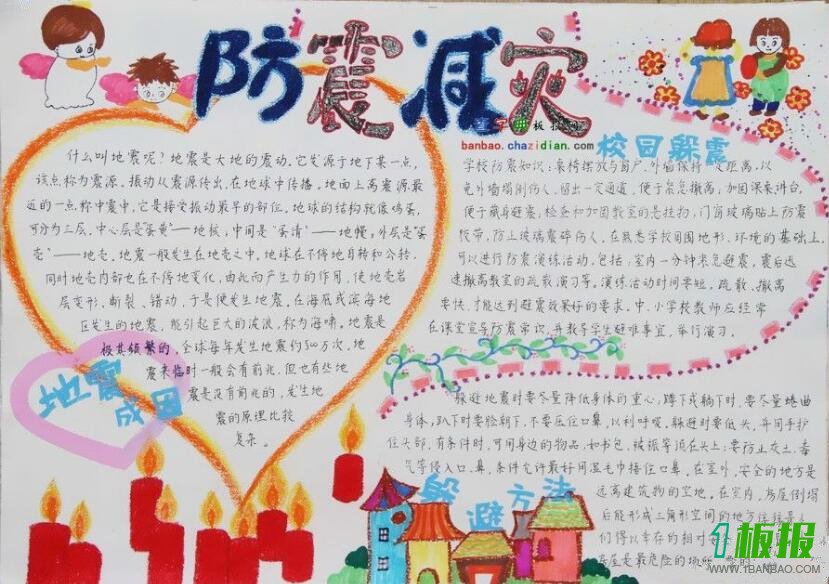 防震减灾
banbao.chazidian.com
校园躲震
什么叫地震呢?地震是大地的震动。它发源于地下某一点,
该点称为震源。振动从震源传出,在地球中传播。地面上离震源最
近的一点称中震中,它是接受振动最早的部位。地球的结构就像鸡蛋,
可分为三层。中心层是"蛋黄"——地核,中间是"蛋清"——地幔,外层是"蛋
壳"——地壳。地震一般发生在地壳之中。地球在不停地自转和公转,
同时地壳内部也在不停地变化,由此而产生力的作用,使地壳岩
层变形、断裂、错动,于是便发生地震。在海底或滨海地
区发生的地震,能引起巨大的波浪,称为海啸。地震是
极其频繁的,全球每年发生地震约500万次。地
震来临时一般会有前兆,但也有些地
震是没有前兆的,发生地
震的原理比较
复杂。
地震
成因
学校防震知识:桌椅摆放与窗户、外墙保持一定距离,以
免外墙塌倒伤人,留出一定通道,便于紧急撤离,加固课桌讲台,
便于藏身避震,检查和加固教室的悬挂物,门窗玻璃贴上防震
胶带,防止玻璃震碎伤人。在熟悉学校周围地形、环境的基础上,
可以进行防震演练活动,包括:室内一分钟紧急避震,震后迅
速撤离教室的疏散演习等。演练活动时间要短,疏散、撤离
要快,才能达到避震效果好的要求。中、小学校教师应经常
在课堂宣导防震常识,并教导学生避难事宜,举行演习。
躲避地震时要尽量降低身体的重心,蹲下或躺下时,要尽量蜷曲
身体,趴下时要脸朝下,不要压住口鼻,以利呼吸。躲避时要低头,并用手护
住头部,有条件时,可用身边的物品,如书包、被褥等顶在头上;要防止灰土、毒
气等侵入口、鼻,条件允许最好用湿毛巾捂住口鼻。在室外,安全的地方是
远离建筑物的空地。在室内,房屋倒塌
后能形成三角形空间的地方往往是人
们得以幸存的相对
房屋是最危险的场所
躲避方法
1板报
WWW.1BANBAO.COM